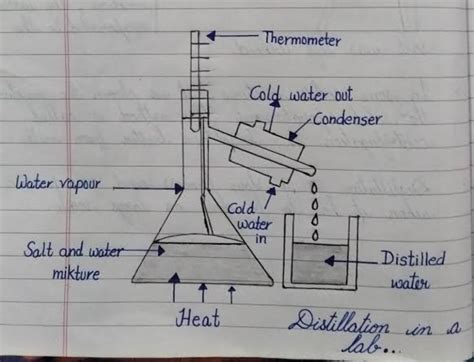 Thermometer
Cold water out
Condenser
Water vapour
Cold
water
in
Salt and water
mikture
Distilled
water
Heat
Distillation in a
lab...